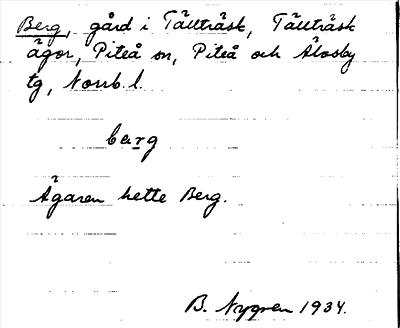 Berg, gård i Tällträsk, Tällträsk
ägor, Piteå sn, Piteå och Älvsby
tg, Norrb. l.
berg
Ägaren hette Berg.
B. Nygren 1934.